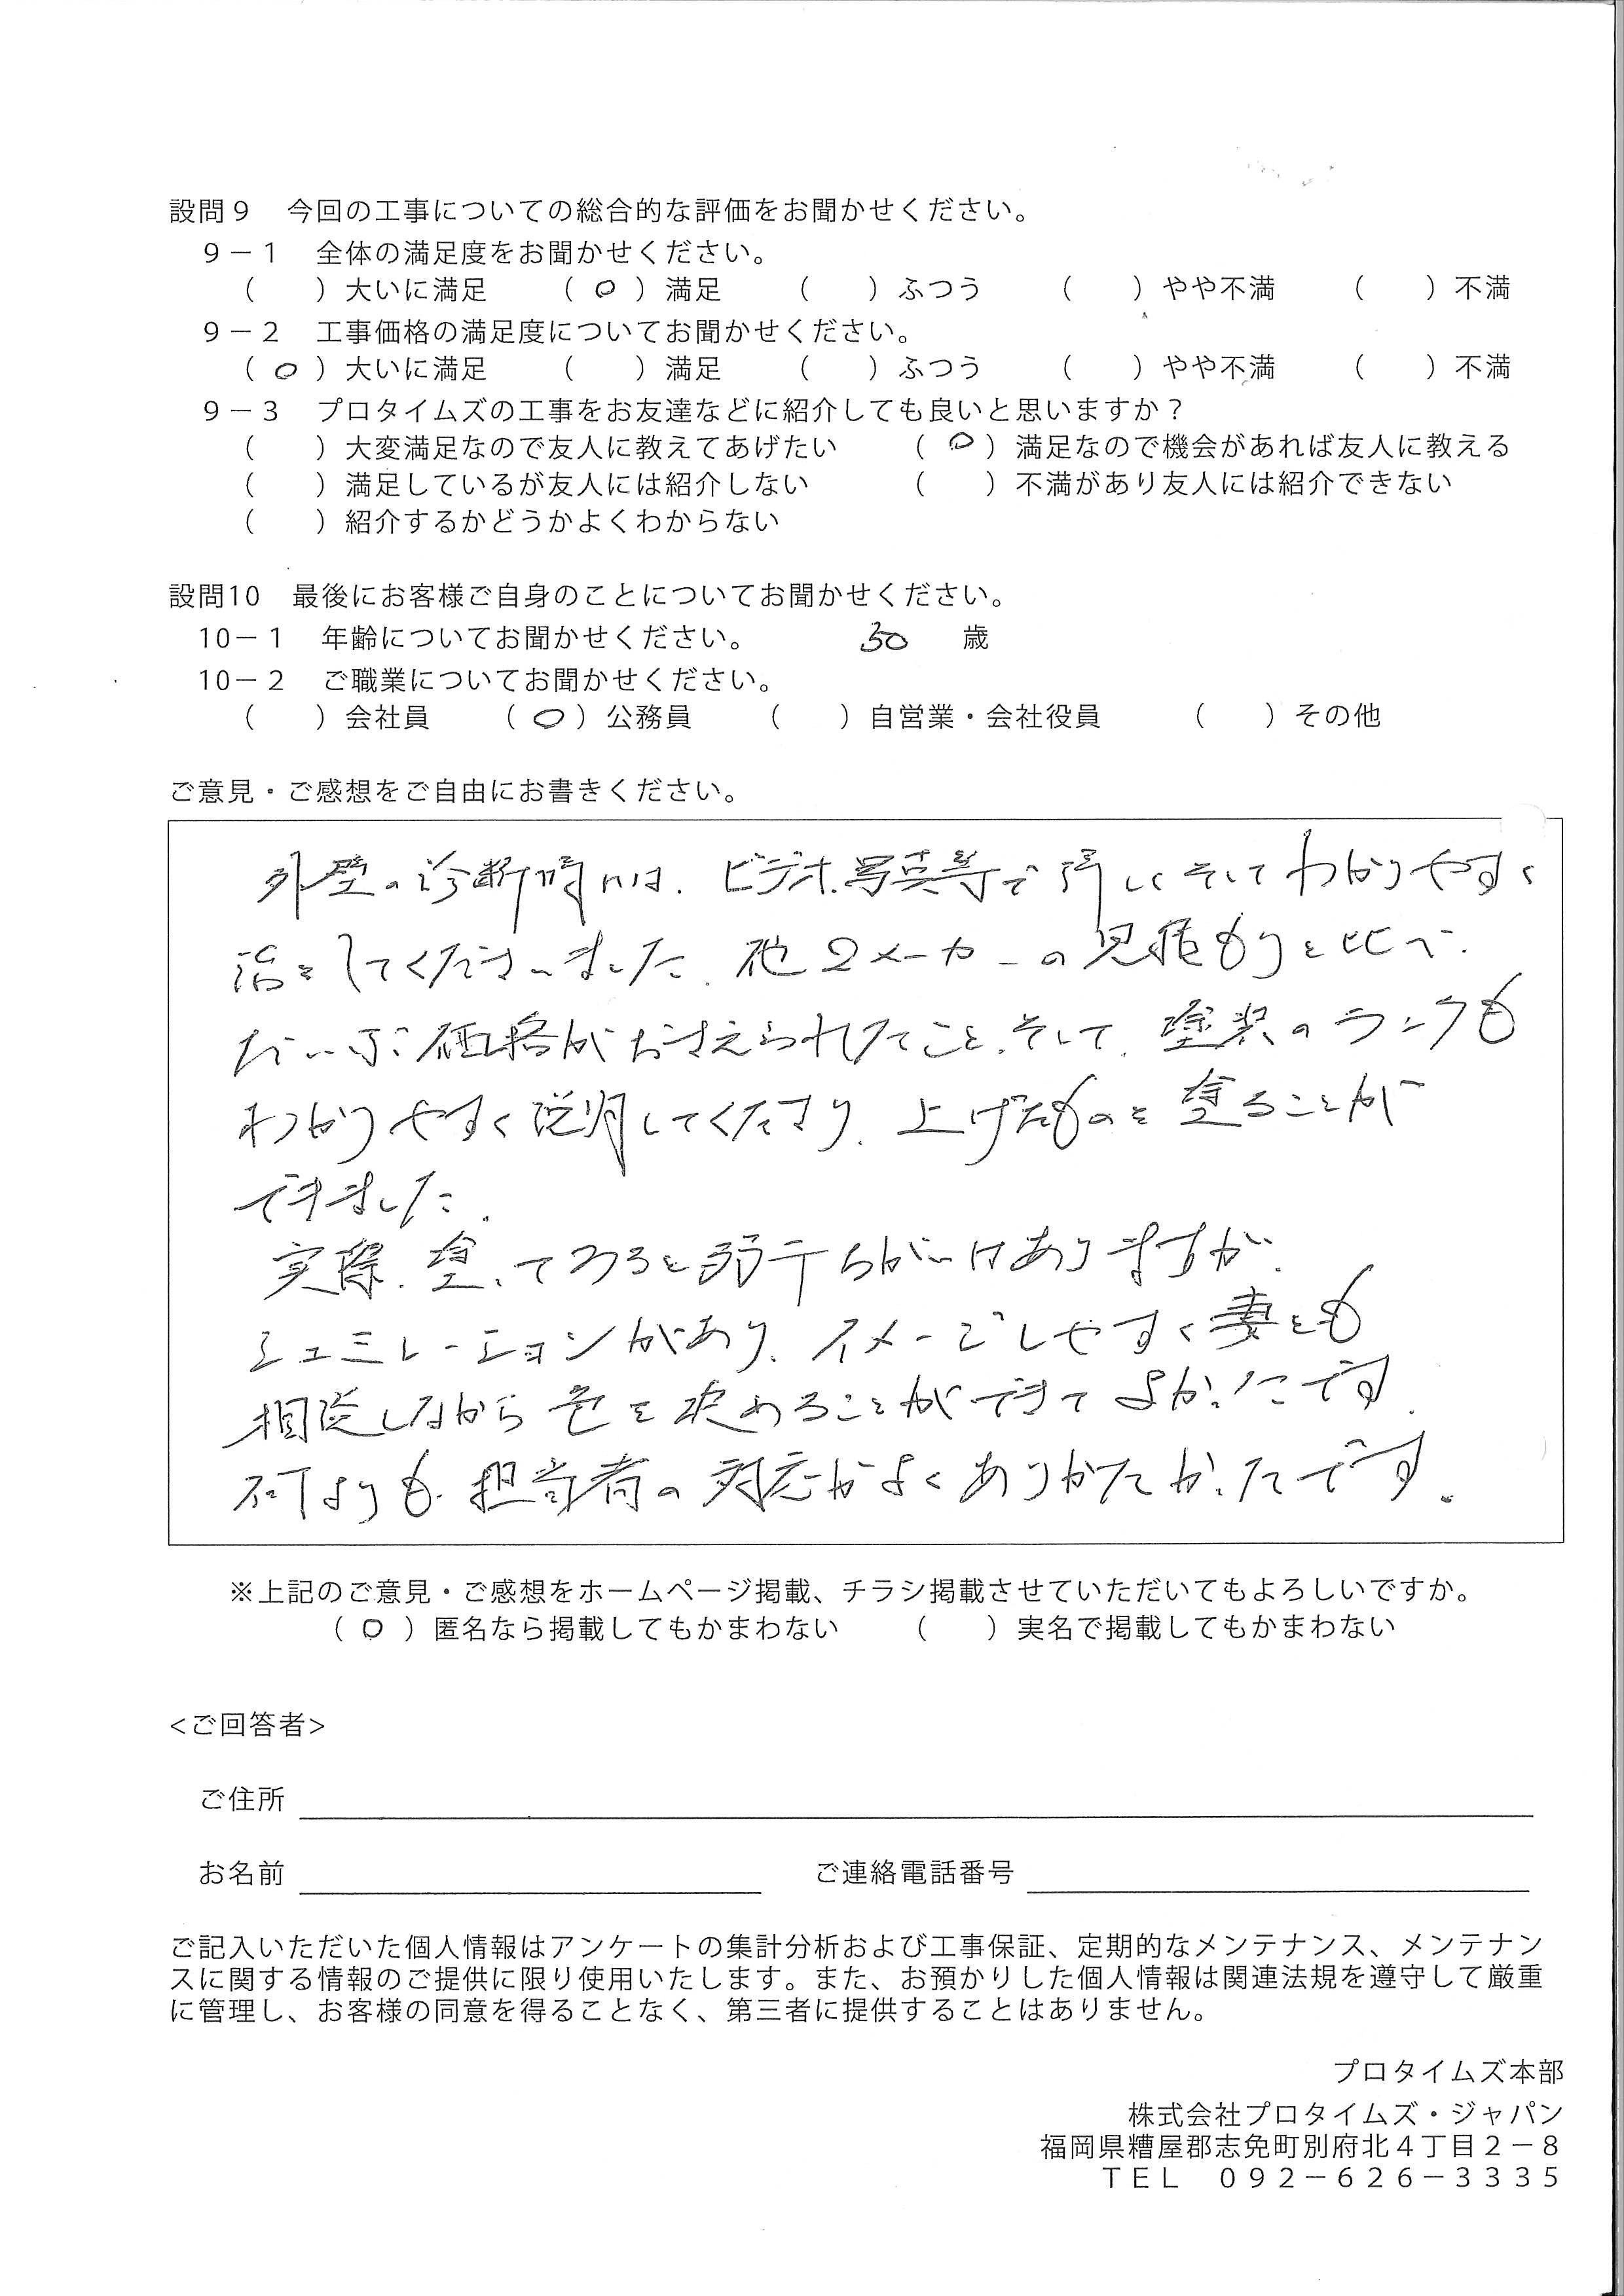 設問９　今回の工事についての総合的な評価をお聞かせください。
９－１　全体の満足度をお聞かせください。
（　　）大いに満足　　（ ○ ）満足　　（　　）ふつう　　（　　）やや不満　　（　　）不満
９－２　工事価格の満足度についてお聞かせください。
（ ○ ）大いに満足　　（　　）満足　　（　　）ふつう　　（　　）やや不満　　（　　）不満
９－３　プロタイムズの工事をお友達などに紹介しても良いと思いますか？
（　　）大変満足なので友人に教えてあげたい　　（ ○ ）満足なので機会があれば友人に教える
（　　）満足しているが友人には紹介しない　　（　　）不満があり友人には紹介できない
（　　）紹介するかどうかよくわからない
設問10　最後にお客様ご自身のことについてお聞かせください。
10－１　年齢についてお聞かせください。　　歳
10－２　ご職業についてお聞かせください。
（　　）会社員　　（ ○ ）公務員　　（　　）自営業・会社役員　　（　　）その他
ご意見・ご感想をご自由にお書きください。
外壁の診断時には、ビデオ、写真等で詳しくそしてわかりやすく
してくださいました。他２メーカーの見積もりと比べ、
だいぶ価格がおさえられたこと、そして、塗装のランクも
わかりやすく説明してくださり、上げたものを塗ることが
できました。
実際、塗ってみると若干ちがいはありますが、
シュミレーションがあり、イメージしやすく妻とも
相談しながら色を決めることができてよかったです。
何よりも、担当者の対応がよくありがたかったです。
※上記のご意見・ご感想をホームページ掲載、チラシ掲載させていただいてもよろしいですか。
（ ○ ）匿名なら掲載してもかまわない　　（　　）実名で掲載してもかまわない
<ご回答者>
ご住所
お名前　　ご連絡電話番号
ご記入いただいた個人情報はアンケートの集計分析および工事保証、定期的なメンテナンス、メンテナン
スに関する情報のご提供に限り使用いたします。また、お預かりした個人情報は関連法規を遵守して厳重
に管理し、お客様の同意を得ることなく、第三者に提供することはありません。
プロタイムズ本部
株式会社プロタイムズ・ジャパン
福岡県糟屋郡志免町別府北４丁目２－８
ＴＥＬ　０９２－６２６－３３３５